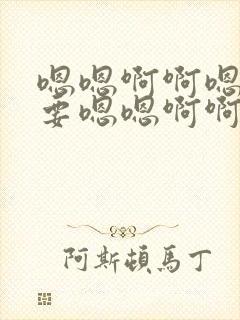 嗯嗯啊啊嗯
要嗯嗯啊啊
阿斯頓馬丁